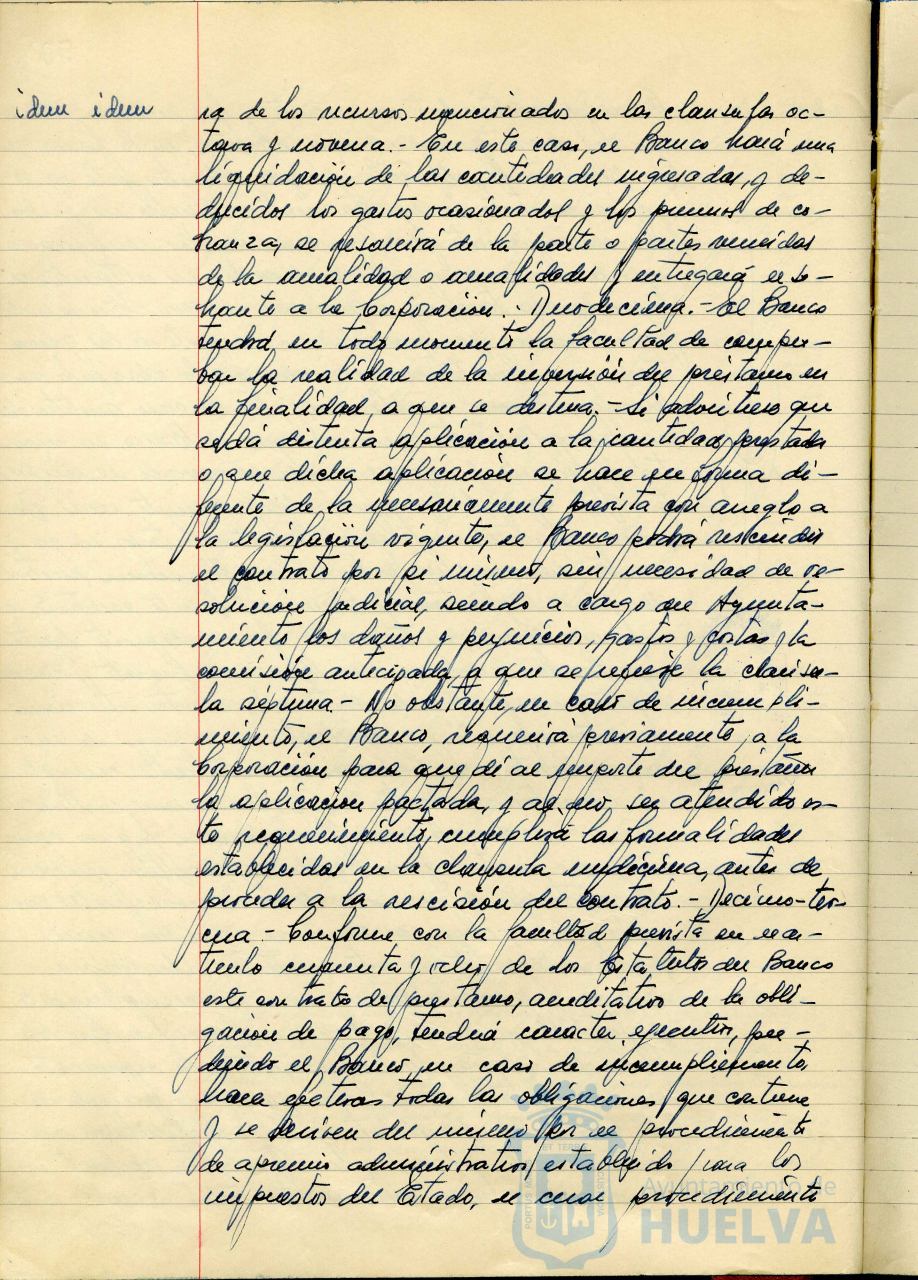 idem idem
ra de los recursos mencionados en las clausulas oc-
tava y novena.- En este caso, el Banco hará una
liquidación de las cantidades ingresadas, y de-
ducidos los gastos ocasionados y los premios de co-
branza, se resarcirá de la parte o partes vencidas
de la anualidad o anualidades y entregará el so-
brante a la Corporación.- Duodecima.- El Banco
tendrá en todo momento la facultad de compro-
bar la realidad de la inversión del préstamo en
la finalidad a que se destina.- Si advirtiese que
se dá distinta aplicación a la cantidad prestada
o que dicha aplicación se hace en forma di-
ferente de la necesariamente prevista con arreglo a
la legislación vigente, el Banco podrá rescindir
el contrato por si mismo, sin necesidad de re-
solución judicial, siendo a cargo del Ayunta-
miento los daños y perjuicios, gastos y costas y la
comisión anticipada, a que se refiere la clausu-
la séptima.- No obstante, en caso de incumpli-
miento, el Banco, requerirá previamente, a la
Corporación para que dé al importe del préstamo
la aplicación pactada, y de no, ser atendido es-
te requerimiento, cumplirá las formalidades
establecidas en la clausula undécima, antes de
proceder a la rescisión del contrato.- Decimo-ter-
cera - Conforme con la facultad prevista en el ar-
tículo cincuenta y ocho de los Estatutos del Banco
este contrato de prestamo, acreditativo de la obli-
gación de pago, tendrá caracter ejecutivo, pu-
diendo el Banco, en caso de incumplimiento,
hacer efectivas todas las obligaciones que contiene
y se deriven del mismo por el procedimiento
de apremio administrativo establecido para los
impuestos del Estado, el cual procedimiento
Ayuntamiento de
HUELVA